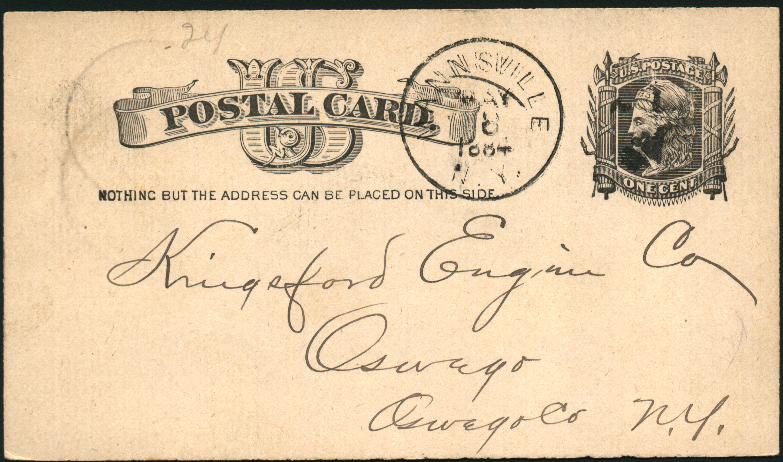 24
US
POSTAL CARD.
NOTHING BUT THE ADDRESS CAN BE PLACED ON THIS SIDE
MAY
6
1884
N.Y.
U.S. POSTAGE
ONE CENT
Kingsford Engine Co
Oswego
Oswego Co N.Y.